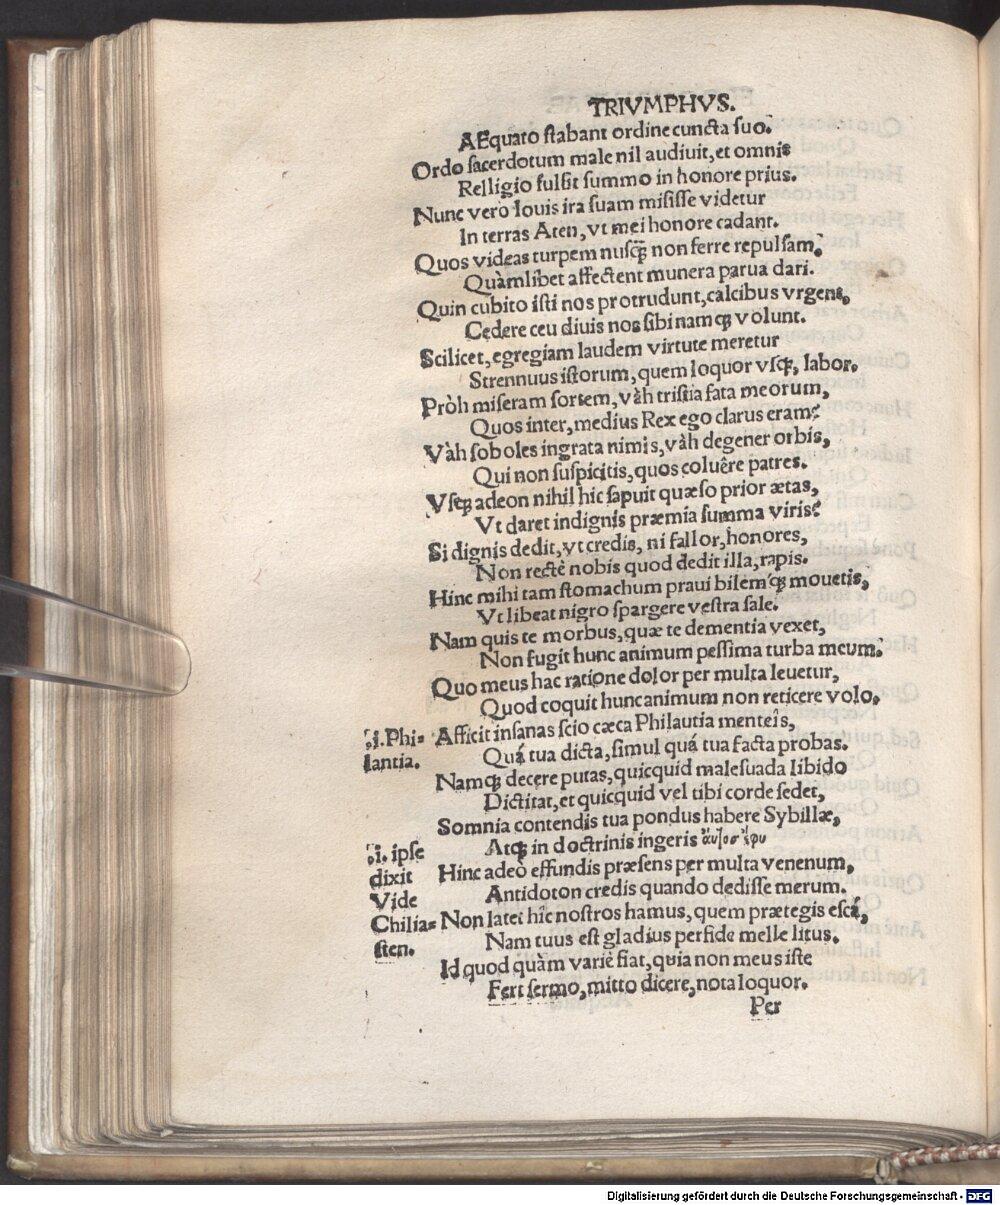 TRIVMPHVS.
AEquato stabant ordine cuncta suo.
Ordo sacerdotum male nil audiuit, et omnis
Relligio fulsit summo in honore prius.
Nunc vero Iouis ira suam misisse videtur
In terras Aten, vt mei honore cadant.
Quos videas turpem nusq̃ non ferre repulsam,
Quàmlibet affectent munera parua dari.
Quin cubito isti nos protrudunt, calcibus vrgent,
Cedere ceu diuis nos sibi namq; volunt.
Scilicet, egregiam laudem virtute meretur
Strennuus istorum, quem loquor vsq;, labor.
Pròh miseram sortem, vàh tristia fata meorum,
Quos inter, medius Rex ego clarus eram?
Vàh soboles ingrata nimis, vàh degener orbis,
Qui non suspicitis, quos coluêre patres.
Vsq; adeon nihil hic sapuit quæso prior ætas,
Vt daret indignis præmia summa viris?
Si dignis dedit, vt credis, ni fallor, honores,
Non rectè nobis quod dedit illa, rapis.
Hinc mihi tam stomachum praui bilem q; mouetis,
Vt libeat nigro spargere vestra sale.
Nam quis te morbus, quæ te dementia vexet,
Non fugit hunc animum pessima turba meum.
Quo meus hac ratione dolor per multa leuetur,
Quod coquit huncanimum non reticere volo.
.i. Phi- Afficit insanas scio cæca Philautia menteîs,
lantia. Quá tua dicta, simul quá tua facta probas.
Namq; decere putas, quicquid malesuada libido
Dictitat, et quicquid vel tibi corde sedet,
Somnia contendis tua pondus habere Sybillæ,
.i. ipse Atq; in doctrinis ingeris ἀυτοσ ἐφυ
dixit Hinc adeò effundis præsens per multa venenum,
Vide Antidoton credis quando dedisse merum.
Chilia- Non latet hîc nostros hamus, quem prætegis escá,
sten. Nam tuus est gladius perfide melle litus.
Id quod quàm variè fiat, quia non meus iste
Fert sermo, mitto dicere, nota loquor.
Per
Digitalisierung gefördert durch die Deutsche Forschungsgemeinschaft - DFG